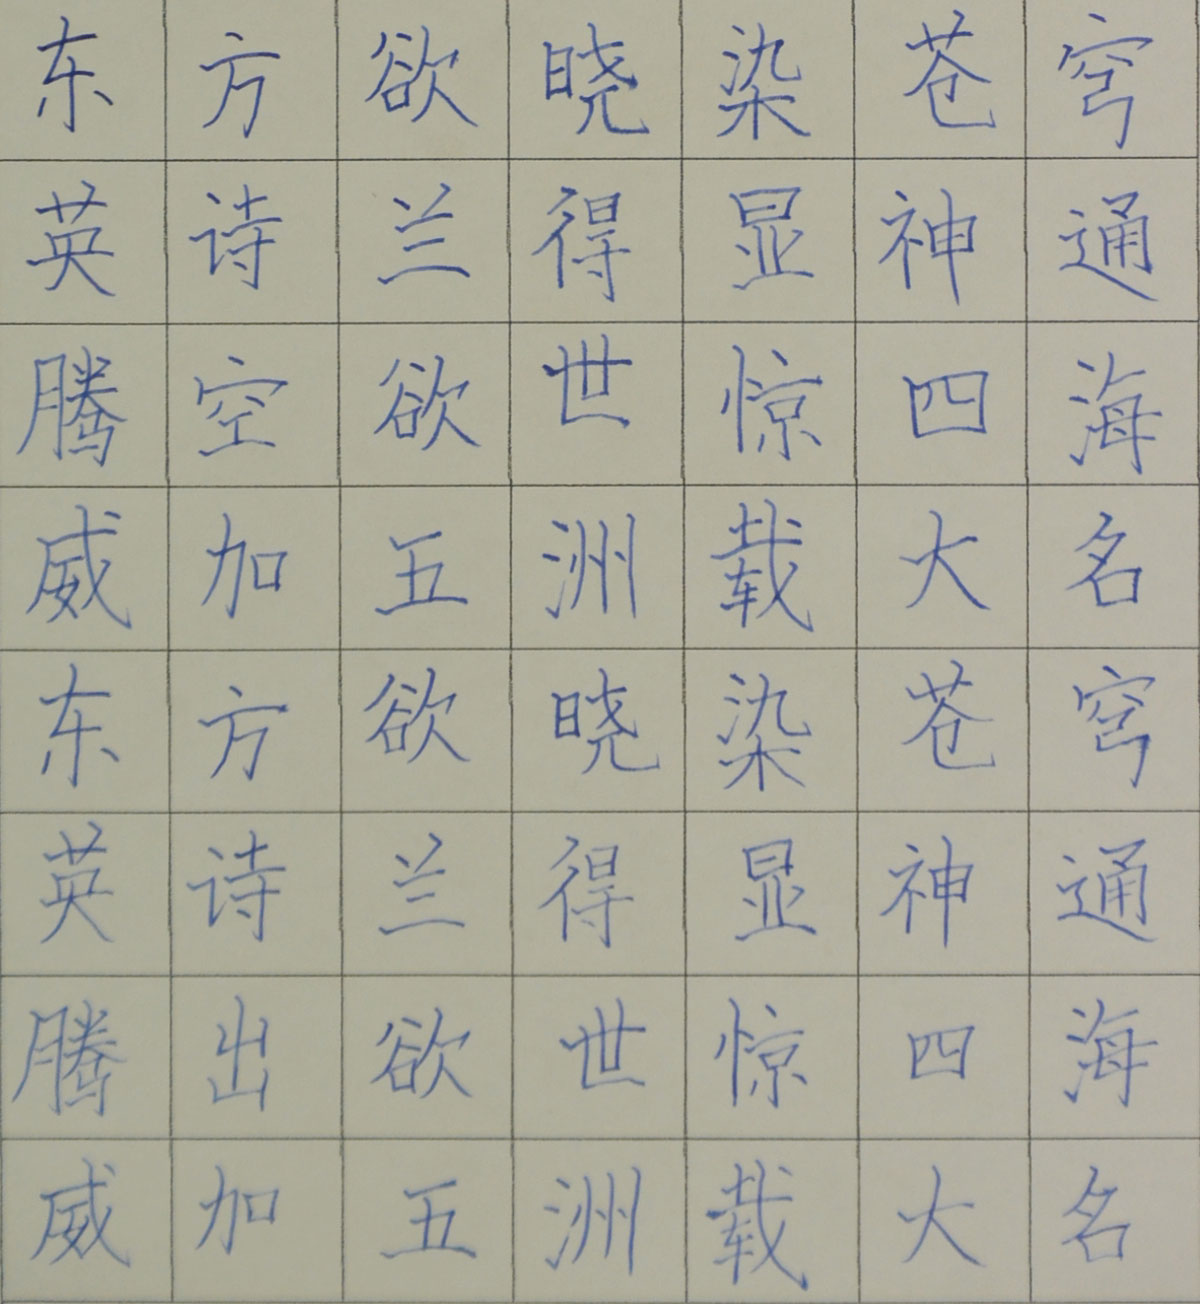 东方欲晓染苍穹
英诗兰得显神通
腾空欲世惊四海
威加五洲载大名
东方欲晓染苍穹
英诗兰得显神通
腾出欲世惊四海
威加五洲载大名